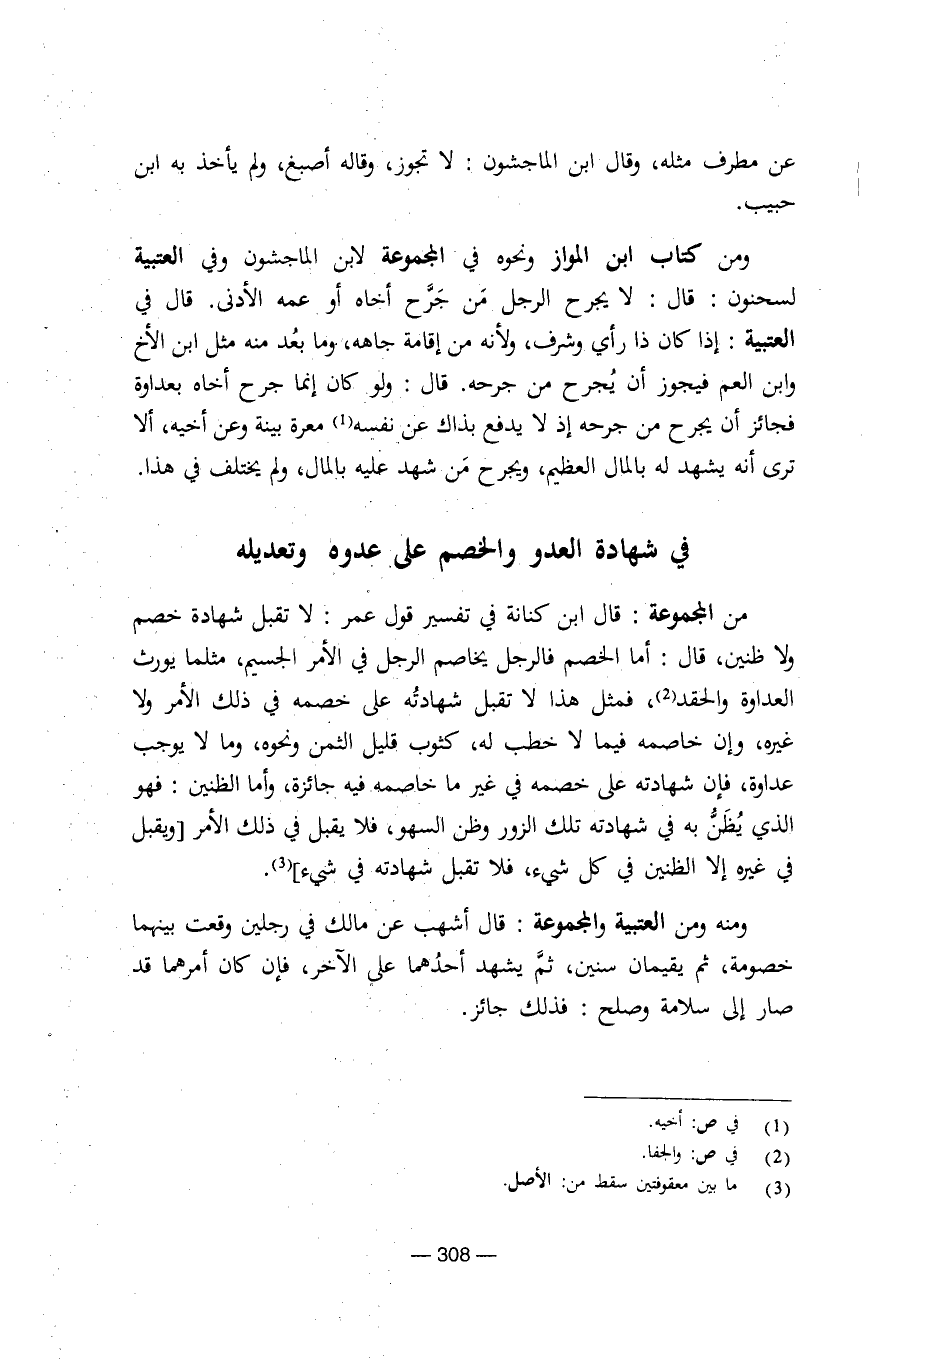 عن مطرف مثله، وقال ابن الماجشون : لا تجوز، وقاله أصبغ، ولم يأخذ به ابن
حبيب.
ومن كتاب ابن المواز ونحوه في المجموعة لابن الماجشون وفي العتبية
لسحنون : قال : لا يجرح الرجل مَن جَرَّح أخاه أو عمه الأدنى. قال في
العتبية : إذا كان ذا رأي وشرف، ولأنه من إقامة جاهه، وما بعُد منه مثل ابن الأخ
وابن العم فيجوز أن يُجرح من جرحه. قال : ولو كان إنما جرح أخاه بعداوة
فجائز أن يجرح من جرحه إذ لا يدفع بذاك عن نفسه(1) معرة بينة وعن أخيه، ألا
ترى أنه يشهد له بالمال العظيم، ويجرح مَن شهد عليه بالمال، ولم يختلف في هذا.
في شهادة العدو والخصم على عدوه وتعديله
من المجموعة : قال ابن كنانة في تفسير قول عمر : لا تقبل شهادة خصم
ولا ظنين، قال : أما الخصم فالرجل يخاصم الرجل في الأمر الجسيم، مثلما يورث
العداوة والحقد(2)، فمثل هذا لا تقبل شهادتُه على خصمه في ذلك الأمر ولا
غيره، وإن خاصمه فيما لا خطب له، كثوب قليل الثمن ونحوه، وما لا يوجب
عداوة، فإن شهادته على خصمه في غير ما خاصمه فيه جائزة، وأما الظنين : فهو
الذي يُظَنُّ به في شهادته تلك الزور وظن السهو، فلا يقبل في ذلك الأمر [ويقبل
في غيره إلا الظنين في كل شيء، فلا تقبل شهادته في شيء](3).
ومنه ومن العتبية والمجموعة : قال أشهب عن مالك في رجلين وقعت بينهما
خصومة، ثم يقيمان سنين، ثمَّ يشهد أحدُهما على الآخر، فإن كان أمرهما قد
صار إلى سلامة وصلح : فذلك جائز.
(1) في ص: أخيه.
(2) في ص: والجفا.
(3) ما بين معقوفتين سقط من: الأصل.
— 308 —